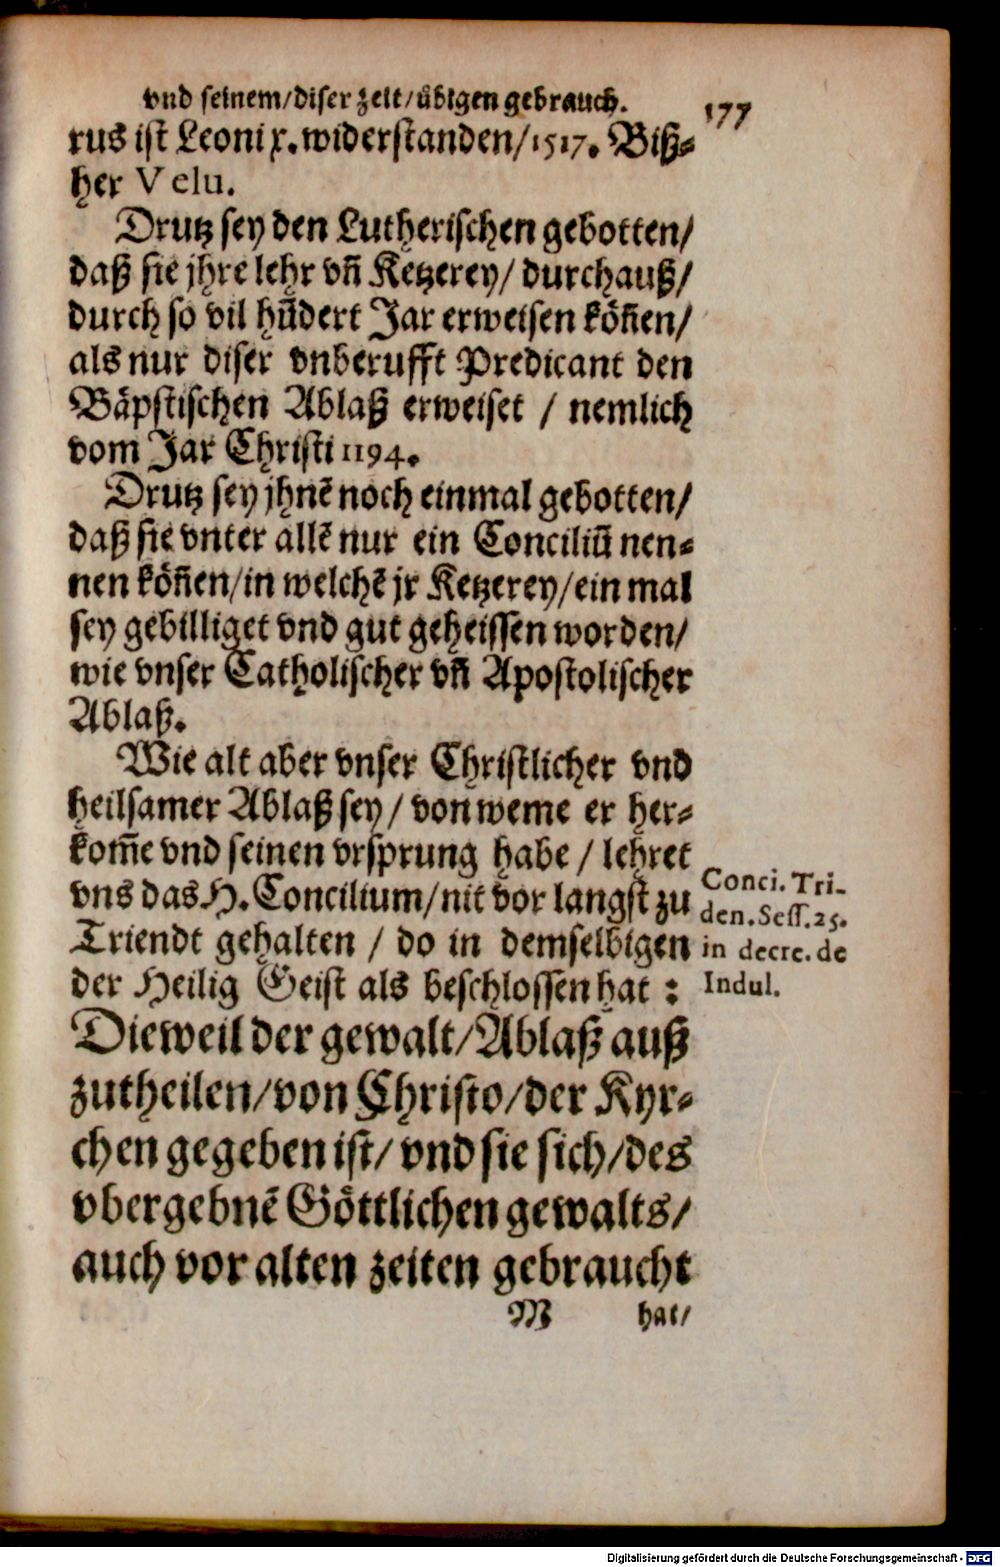 vnd seinem/diser zeit/uͤbigen gebrauch. 177
rus ist Leoni x. widerstanden/1517. Biß-
her Velu.
Drutz sey den Lutherischen gebotten/
daß sie jhre lehr vñ Ketzerey/ durchauß/
durch so vil hũdert Jar erweisen koͤñen/
als nur diser vnberufft Predicant den
Baͤpstischen Ablaß erweiset / nemlich
vom Jar Christi 1194.
Drutz sey jhnẽ noch einmal gebotten/
daß sie vnter allẽ nur ein Conciliũ nen-
nen koͤñen/in welchẽ jr Ketzerey/ein mal
sey gebilliget vnd gut geheissen worden/
wie vnser Catholischer vñ Apostolischer
Ablaß.
Wie alt aber vnser Christlicher vnd
heilsamer Ablaß sey/ von weme er her-
kom̃e vnd seinen vrsprung habe / lehret
vns das H. Concilium/nit vor langst zu
Triendt gehalten / do in demselbigen
der Heilig Geist als beschlossen hat :
Conci. Tri-
den. Sess. 25.
in decre. de
Indul.
Dieweil der gewalt/Ablaß auß
zutheilen/von Christo/der Kyr-
chen gegeben ist/ vnd sie sich/des
vbergebnẽ Goͤttlichen gewalts/
auch vor alten zeiten gebraucht
M hat/
Digitalisierung gefördert durch die Deutsche Forschungsgemeinschaft - DFG